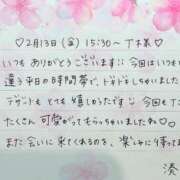 ♡2月13日(金) 15:30〜 丁木様♡
いつもありがとうございます!! 今回はいつもと
違う平日の時間帯で、ドキドキしちゃいました
デザートもとても嬉しかったです 今回も
たくさん可愛がってもらっちゃいましたね♡
また会いに来てくれるのを、楽しみに待ってます
湊